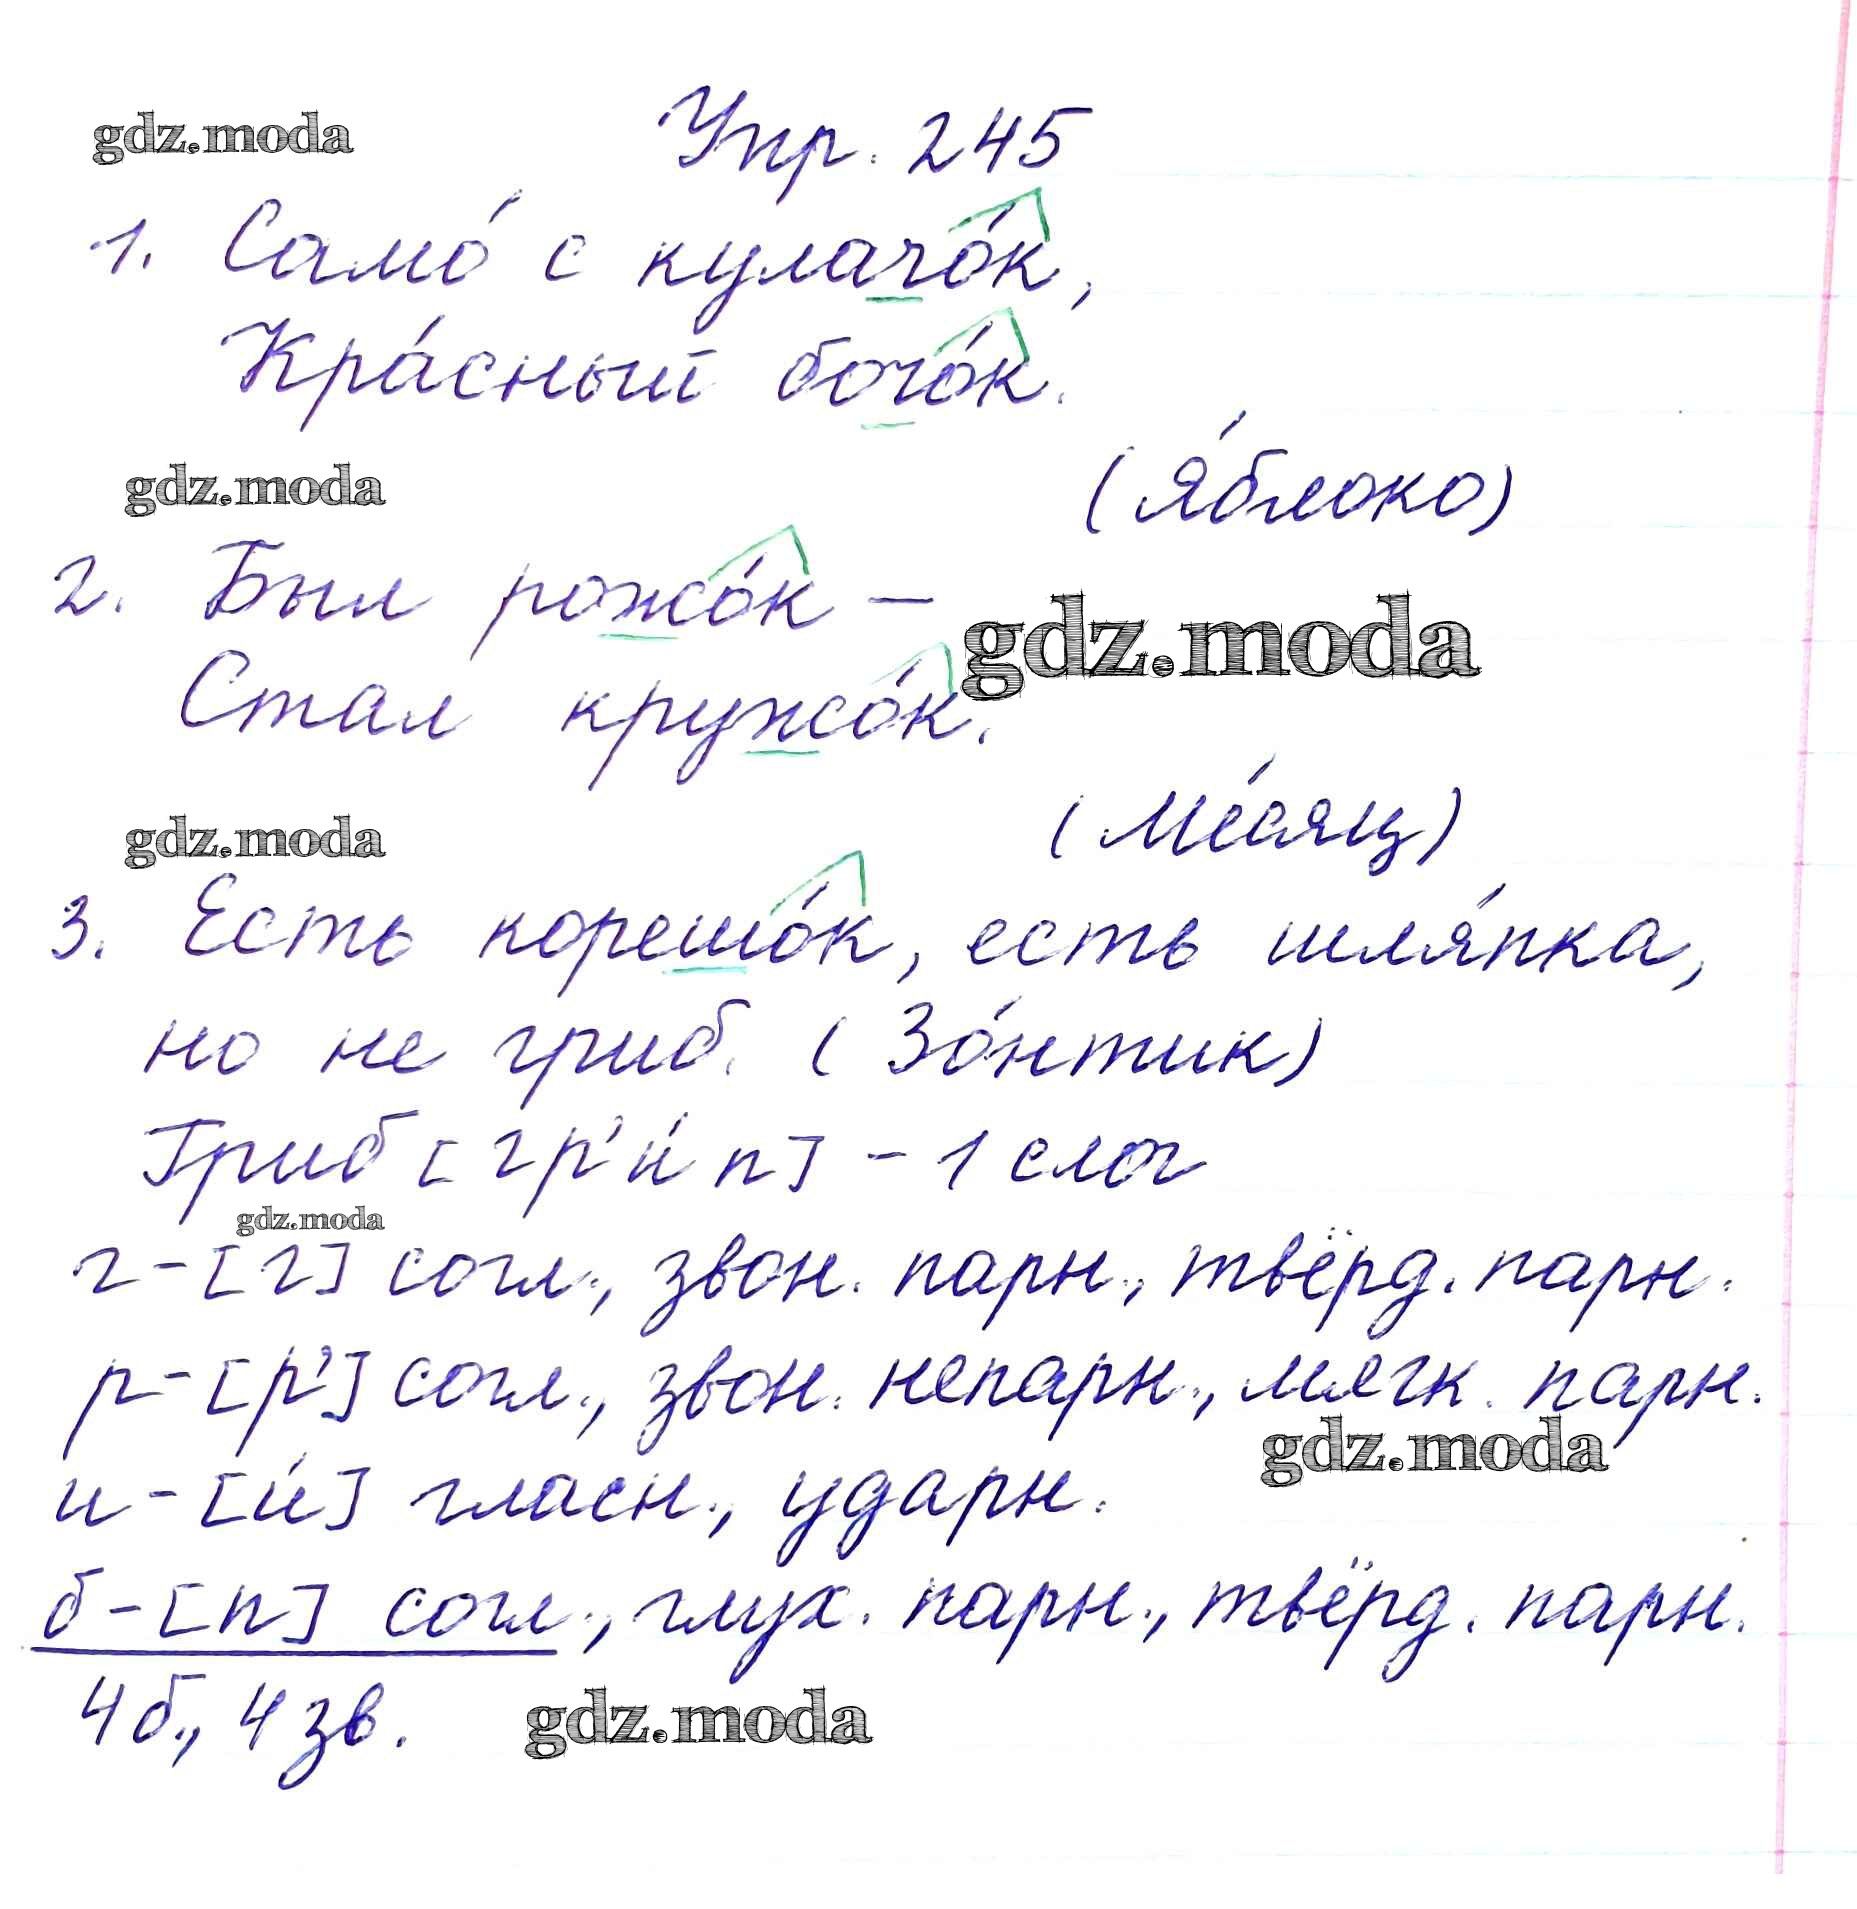 gdz.moda
Упр. 245
1. Само́ с кулачо́к,
Кра́сный бочо́к.
(Я́блоко)
gdz.moda
2. Был рожо́к –
Стал кружо́к.
gdz.moda
(Ме́сяц)
gdz.moda
3. Есть корешо́к, есть шля́пка,
но не гриб. (Зо́нтик)
Гриб [гр'и́п] – 1 слог
gdz.moda
г – [г] согл., звон. парн., твёрд. парн.
р – [р'] согл., звон. непарн., мягк. парн.
gdz.moda
и – [и́] гласн., ударн.
б – [п] согл., глух. парн., твёрд. парн.
4 б., 4 зв.
gdz.moda